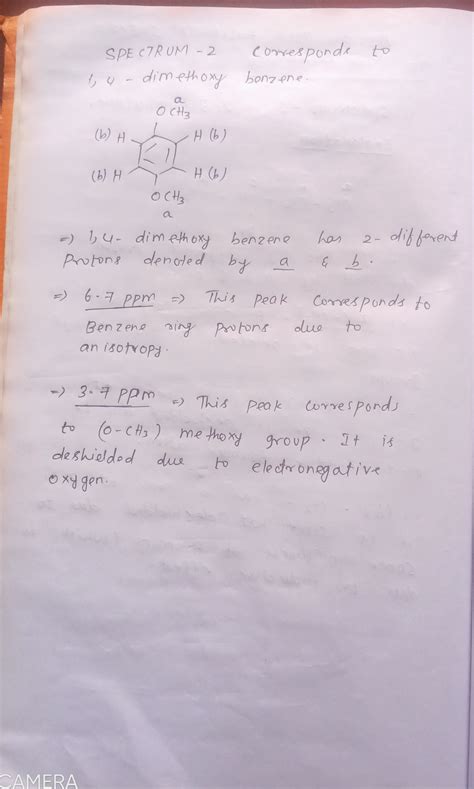 SPECTRUM-2 corresponds to
1,4-dimethoxy benzene.
a
OCH3
(b) H H (b)
(b) H H (b)
OCH3
a
=) 1,4- dimethoxy benzene has 2-different
Protons denoted by a & b.
=) 6.7 ppm =) This peak corresponds to
Benzene ring protons due to
anisotropy.
=) 3.7 ppm =) This peak corresponds
to (O-CH3) methoxy group. It is
deshielded due to electronegative
oxygen.
CAMERA